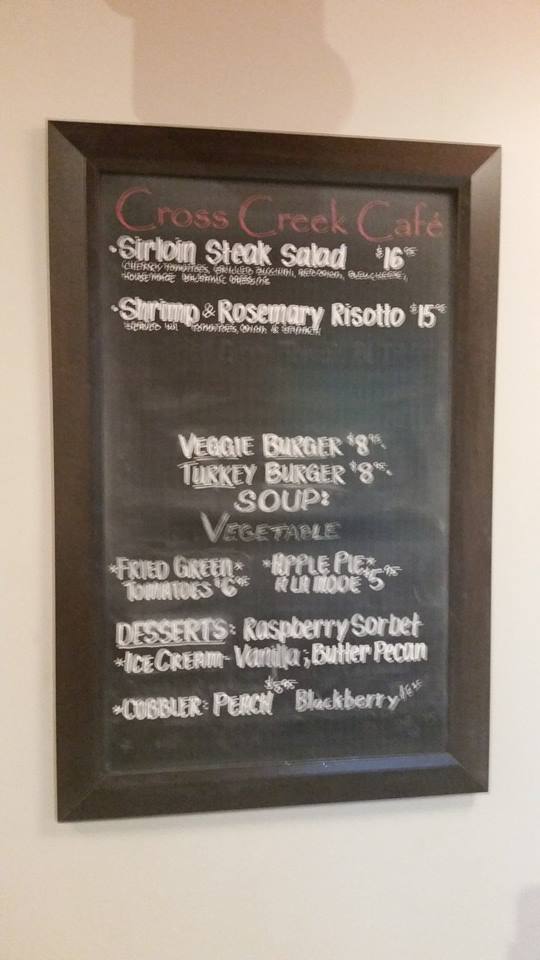 Cross Creek Café
·Sirloin Steak Salad $16.95
CHERRY TOMATOES, GRILLED ZUCCHINI, RED ONION, BLEU CHEESE,
HOUSE MADE BALSAMIC DRESSING
·Shrimp & Rosemary Risotto $15.95
TOMATOES, ONION & SPINACH
VEGGIE BURGER $8.95
TURKEY BURGER $8.95
SOUP:
VEGETABLE
*FRIED GREEN* *APPLE PIE*
TOMATOES $6.95 A LA MODE $5.95
DESSERTS: Raspberry Sorbet
*ICE CREAM- Vanilla; Butter Pecan
*COBBLER: PEACH Blackberry